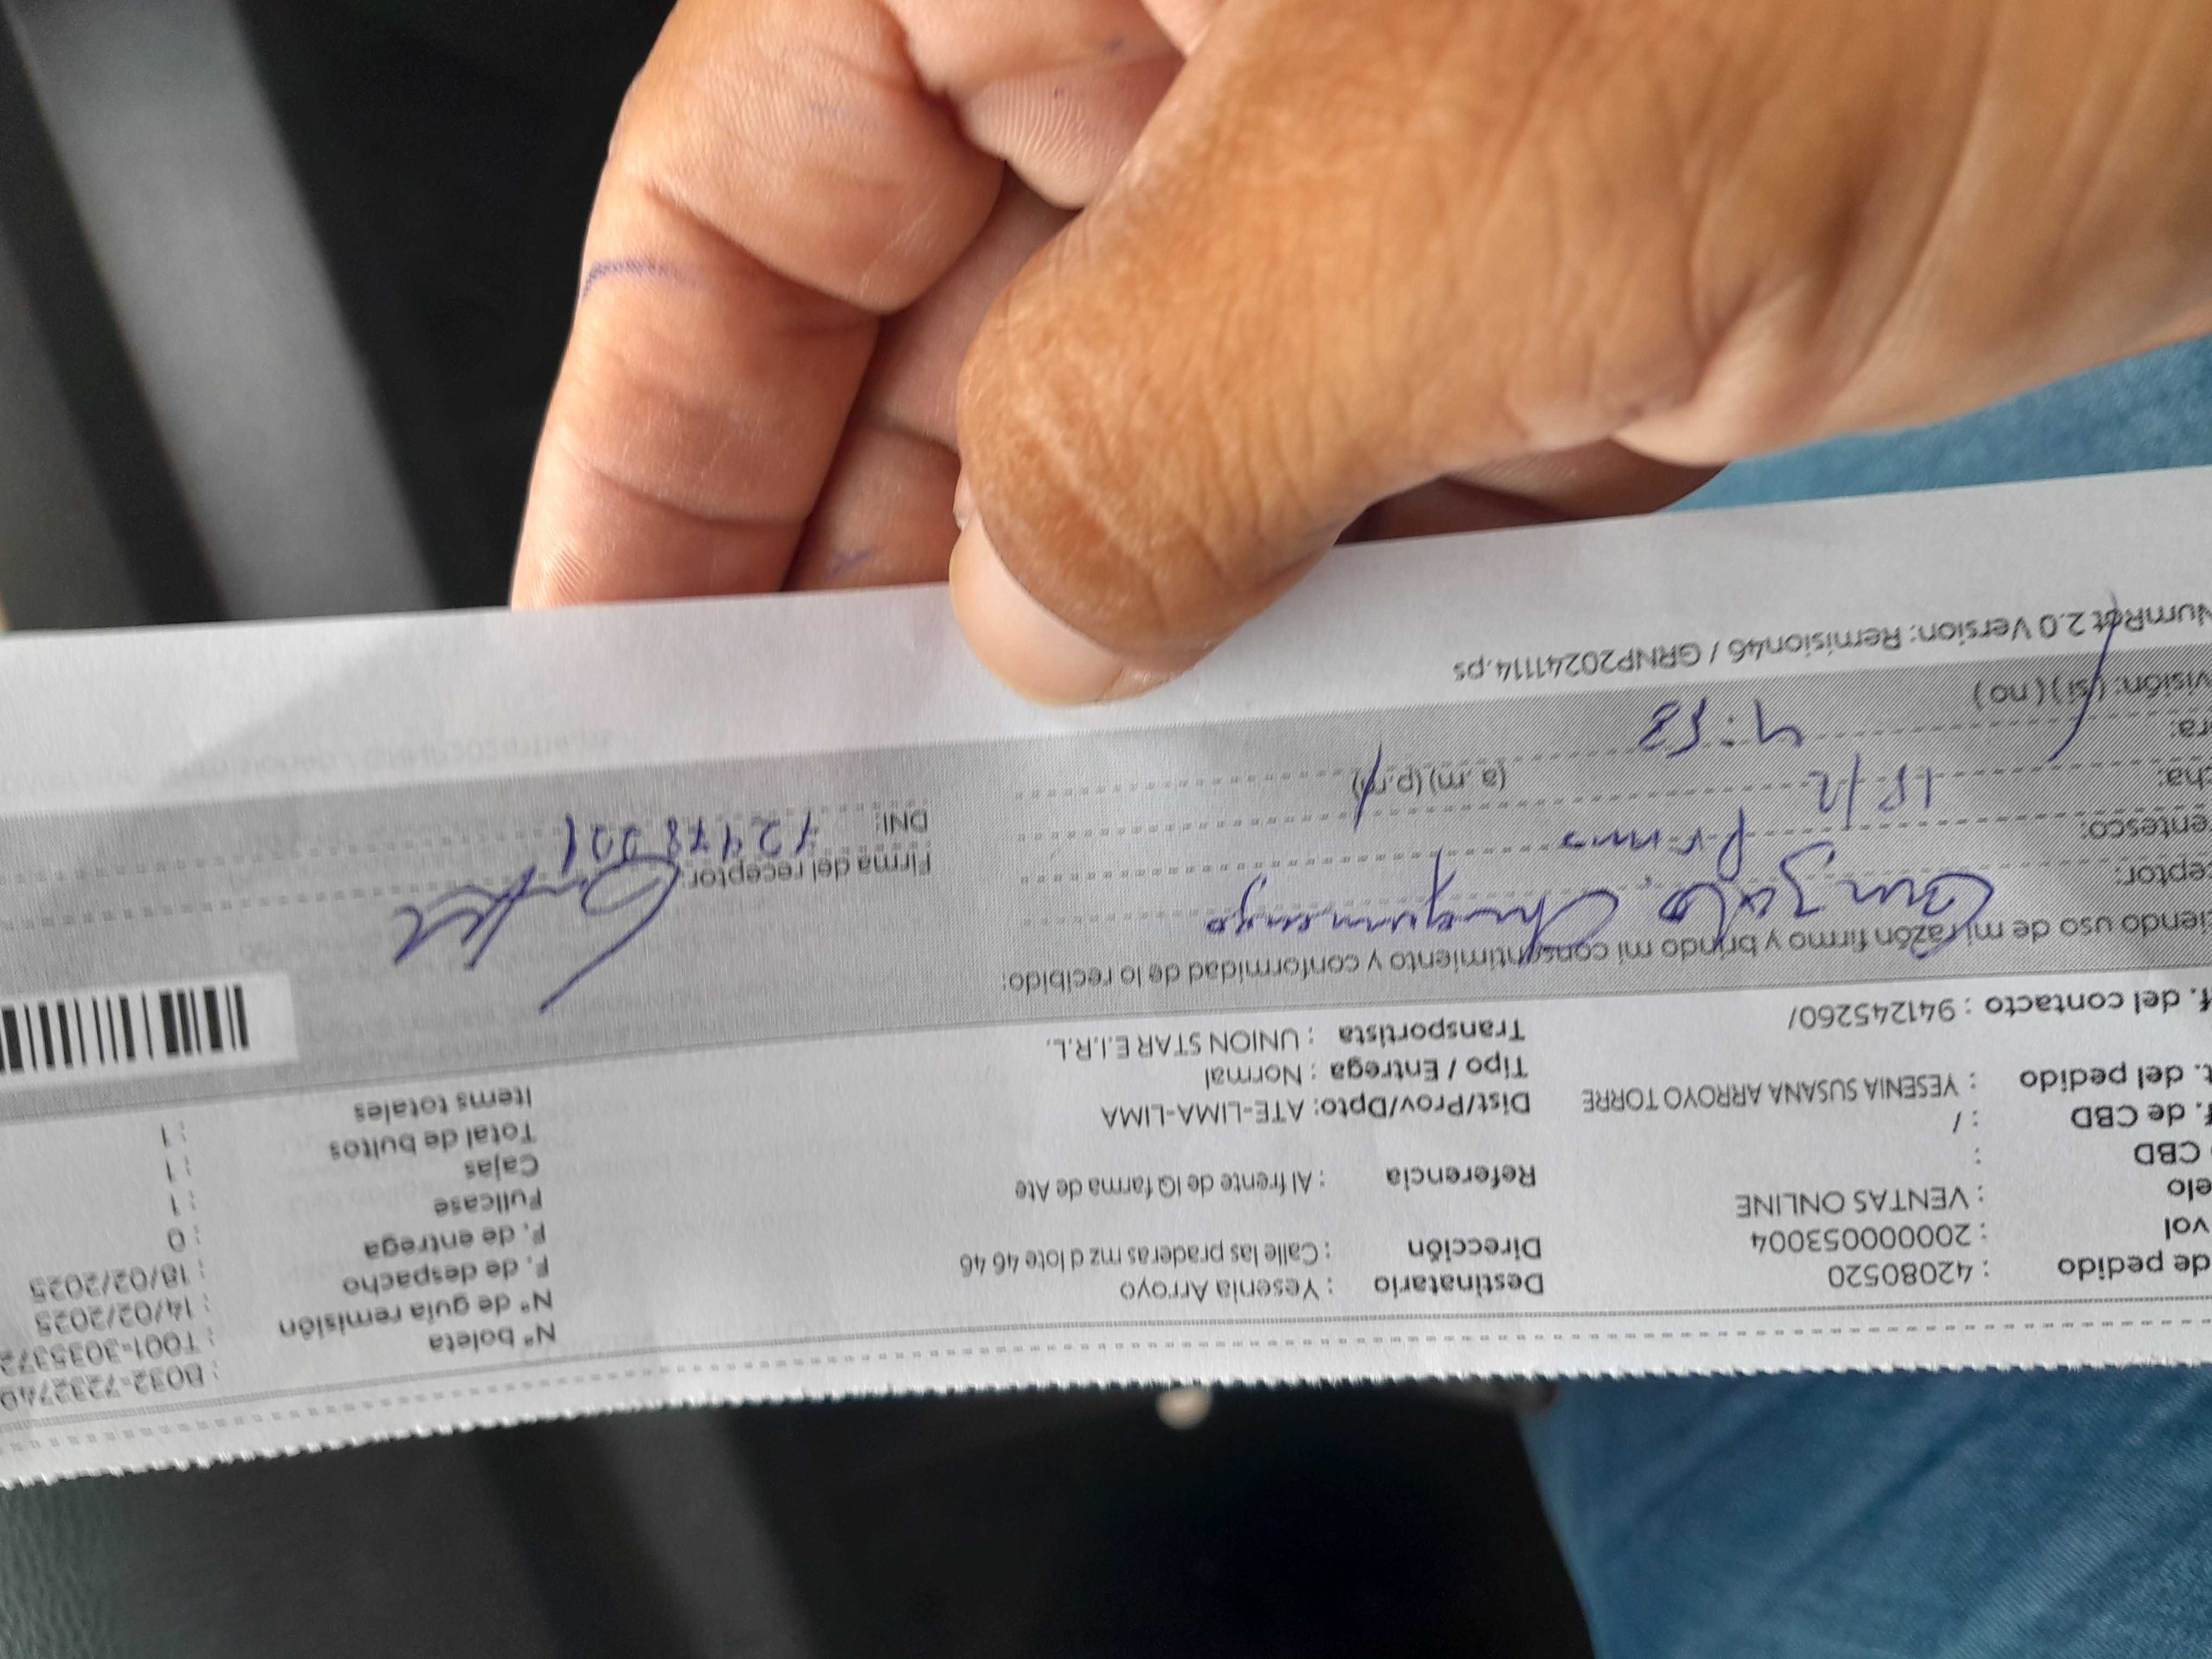 de pedido : 42080520
vol : 20000053004
elo : VENTAS ONLINE
CBD :
f. de CBD : /
t. del pedido : YESENIA SUSANA ARROYO TORRE
f. del contacto : 941245260/
Destinatario : Yesenia Arroyo
Dirección : Calle las praderas mz d lote 46 46
Referencia : Al frente de IQ farma de Ate
Dist/Prov/Dpto: ATE-LIMA-LIMA
Tipo / Entrega : Normal
Transportista : UNION STAR E.I.R.L.
N° boleta : B032-7232740
N° de guía remisión : T001-3035372
F. de despacho : 14/02/2025
F. de entrega : 18/02/2025
Fullcase : 0
Cajas : 1
Total de bultos : 1
Items totales : 1
ciendo uso de mi razón firmo y brindo mi consentimiento y conformidad de lo recibido:
ceptor: Gonzalo Chuquimango
entesco: Primo
cha: 18/2
ora: 4:53 (a.m) (p.m)
visión: (si) (no)
Firma del receptor:
DNI:
NumRot 2.0 Versión: Remisión46 / GRNP20241114.ps